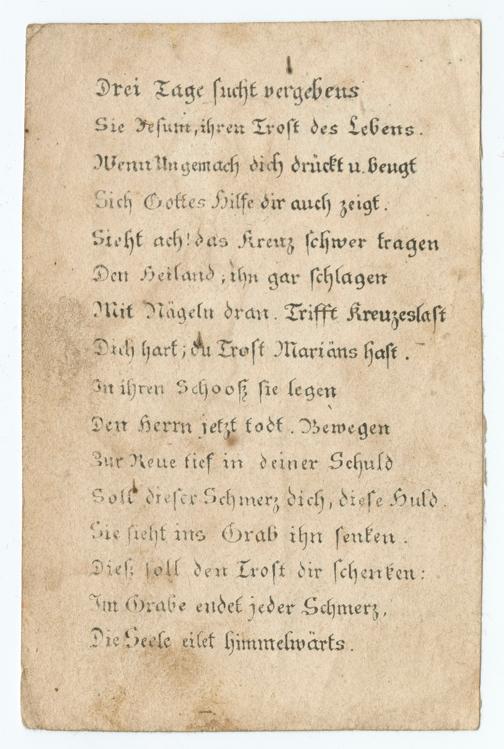 Drei Tage sucht vergebens
Sie Jesum, ihren Trost des Lebens.
Wenn Ungemach dich drückt u. beugt
Sich Gottes Hilfe dir auch zeigt.
Sieht ach! das Kreuz schwer tragen
Den Heiland, ihn gar schlagen
Mit Nägeln dran. Trifft Kreuzeslast
Dich hart; du Trost Mariäns hast.
In ihren Schooß sie legen
Den Herrn jetzt todt. Bewegen
Zur Reue tief in deiner Schuld
Soll dieser Schmerz dich, diese Huld.
Sie sieht ins Grab ihn senken.
Dieß soll den Trost dir schenken:
Im Grabe endet jeder Schmerz,
Die Seele eilet himmelwärts.